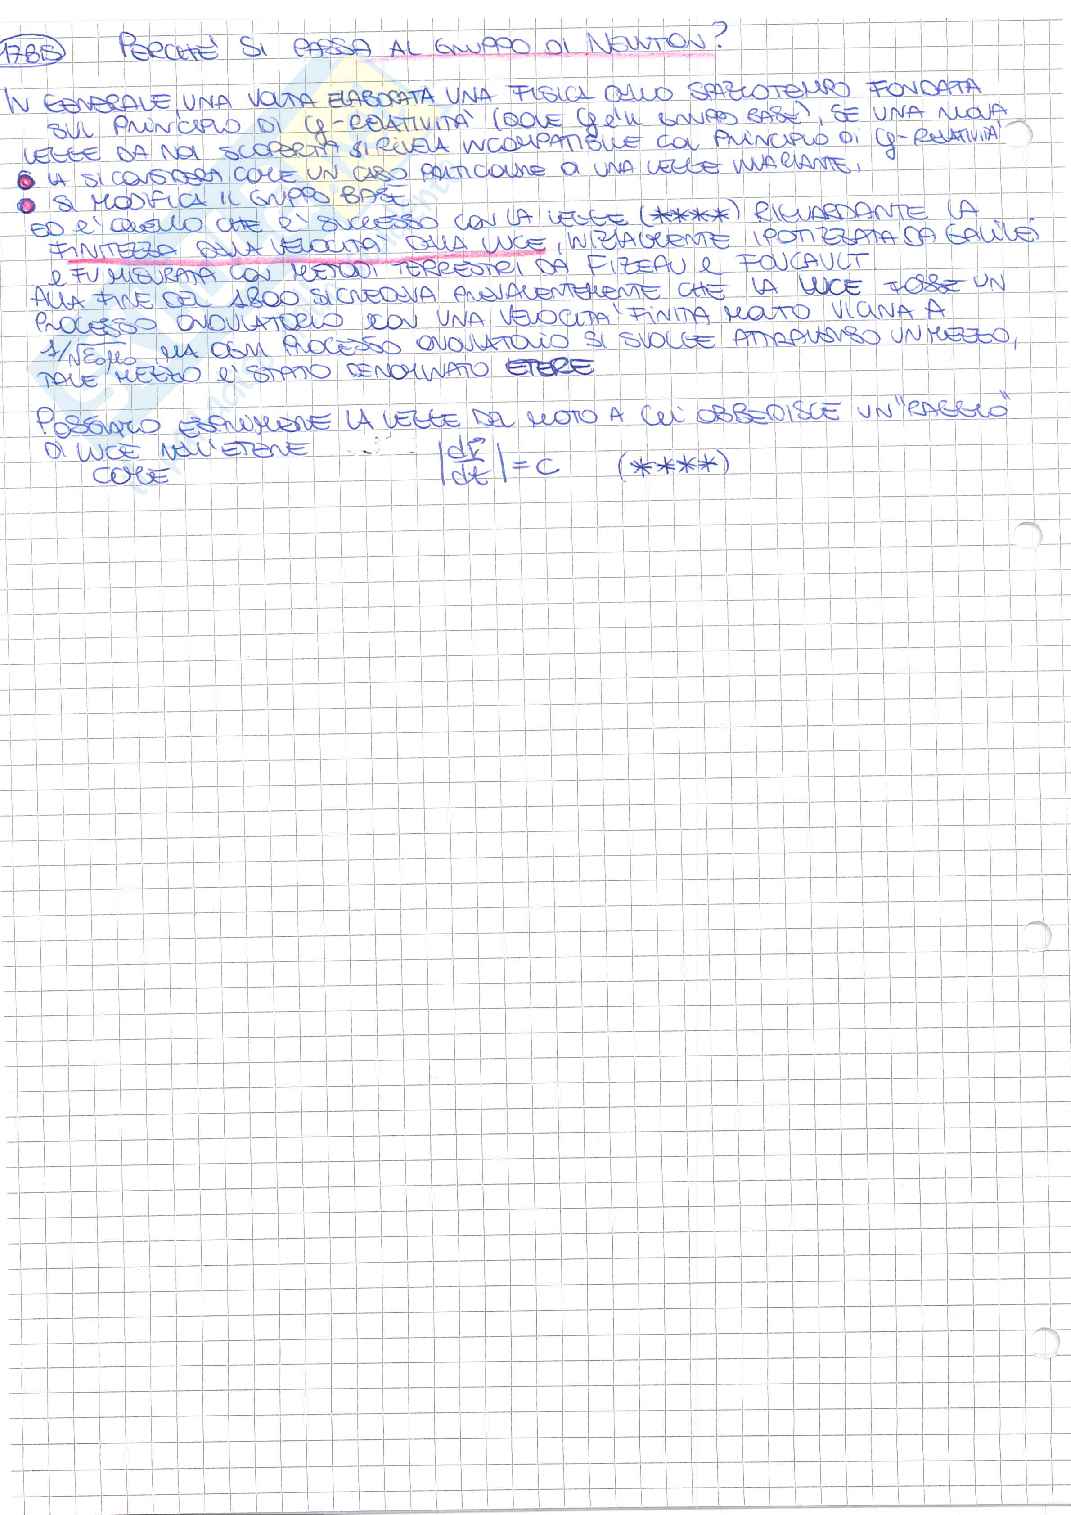 178B PERCHÈ SI PASSA AL GRUPPO DI NEWTON?
IN GENERALE, UNA VOLTA ELABORATA UNA FISICA DELLO SPAZIOTEMPO FONDATA
SUL PRINCIPIO DI G-RELATIVITÀ (DOVE G È IL GRUPPO BASE), SE UNA NUOVA
LEGGE DA NOI SCOPERTA SI RIVELA INCOMPATIBILE COL PRINCIPIO DI G-RELATIVITÀ
• LA SI CONSIDERA COME UN CASO PARTICOLARE DI UNA LEGGE INVARIANTE,
• SI MODIFICA IL GRUPPO BASE
ED È QUELLO CHE È SUCCESSO CON LA LEGGE (****) RIGUARDANTE LA
FINITEZZA DELLA VELOCITÀ DELLA LUCE, INIZIALMENTE IPOTIZZATA DA GALILEI
E FU MISURATA CON METODI TERRESTRI DA FIZEAU E FOUCAULT
ALLA FINE DEL 1800 SI CREDEVA PREVALENTEMENTE CHE LA LUCE FOSSE UN
PROCESSO ONDULATORIO CON UNA VELOCITÀ FINITA MOLTO VICINA A
1/√ε₀μ₀, MA OGNI PROCESSO ONDULATORIO SI SVOLGE ATTRAVERSO UN MEZZO,
TALE MEZZO È STATO DENOMINATO ETERE
POSSIAMO ESPRIMERE LA LEGGE DEL MOTO A CUI OBBEDISCE UN "RAGGIO"
DI LUCE NELL'ETERE
COME |dr/dt| = C (****)